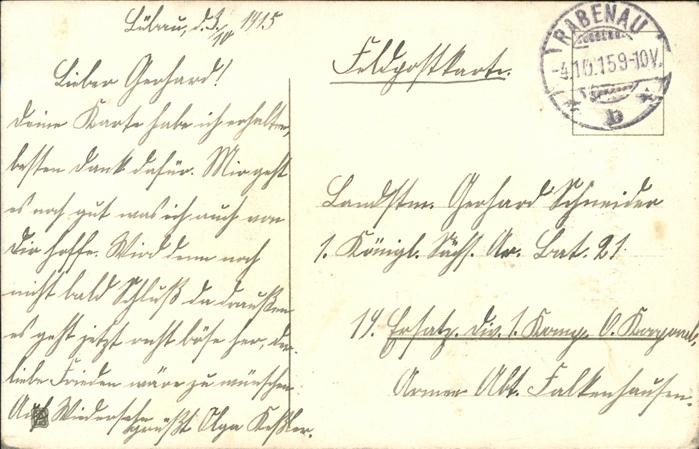 Lübau, d. 3./10 1915
Lieber Gerhard!
deine Karte habe ich erhalten,
besten Dank dafür. Mir geht
es noch gut was ich auch von
Dir hoffe. Wird denn noch
nicht bald Schluß da draußen
es geht jetzt recht böse her, der
liebe Frieden wäre zu wünschen
Auf Wiedersehn
grüßt Olga Keßler.
Feldpostkarte.
RABENAU
-4.10.15 9-10V.
b
Landstm. Gerhard Schneider
1. Königl. Sächs. Ar. Bat. 21
19. Ersatz. Div. 1. Komp.
Armee Abt. Falkenhausen.